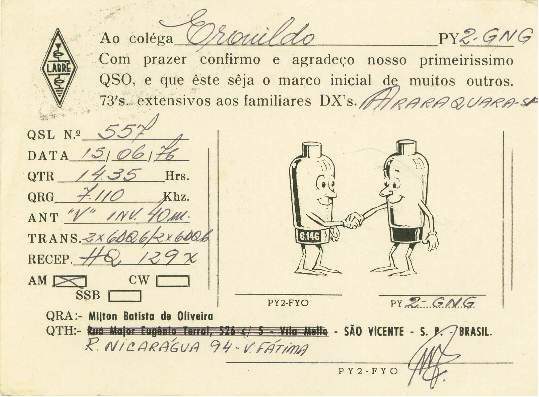 LABRE
Ao coléga Eronildo PY2-GNG
Com prazer confirmo e agradeço nosso primeirissimo
QSO, e que éste sêja o marco inicial de muitos outros.
73's. extensivos aos familiares DX's. ARARAQUARA-SP
QSL N.º 557
DATA 15/06/76
QTR 1435 Hrs.
QRG 7.110 Khz.
ANT "V" INV. 40m.
TRANS. 2x6DQ6/2x6DQ6
RECEP. HQ 129X
AM CW
SSB
6.146
PY2-FYO PY 2-GNG
QRA:- Milton Batista de Oliveira
QTH:- Rua Major Eugênio Terral, 526 c/ 5 - Vila Mello - SÃO VICENTE - S. P. - BRASIL.
R. NICARÁGUA 94-V. FÁTIMA
PY2-FYO